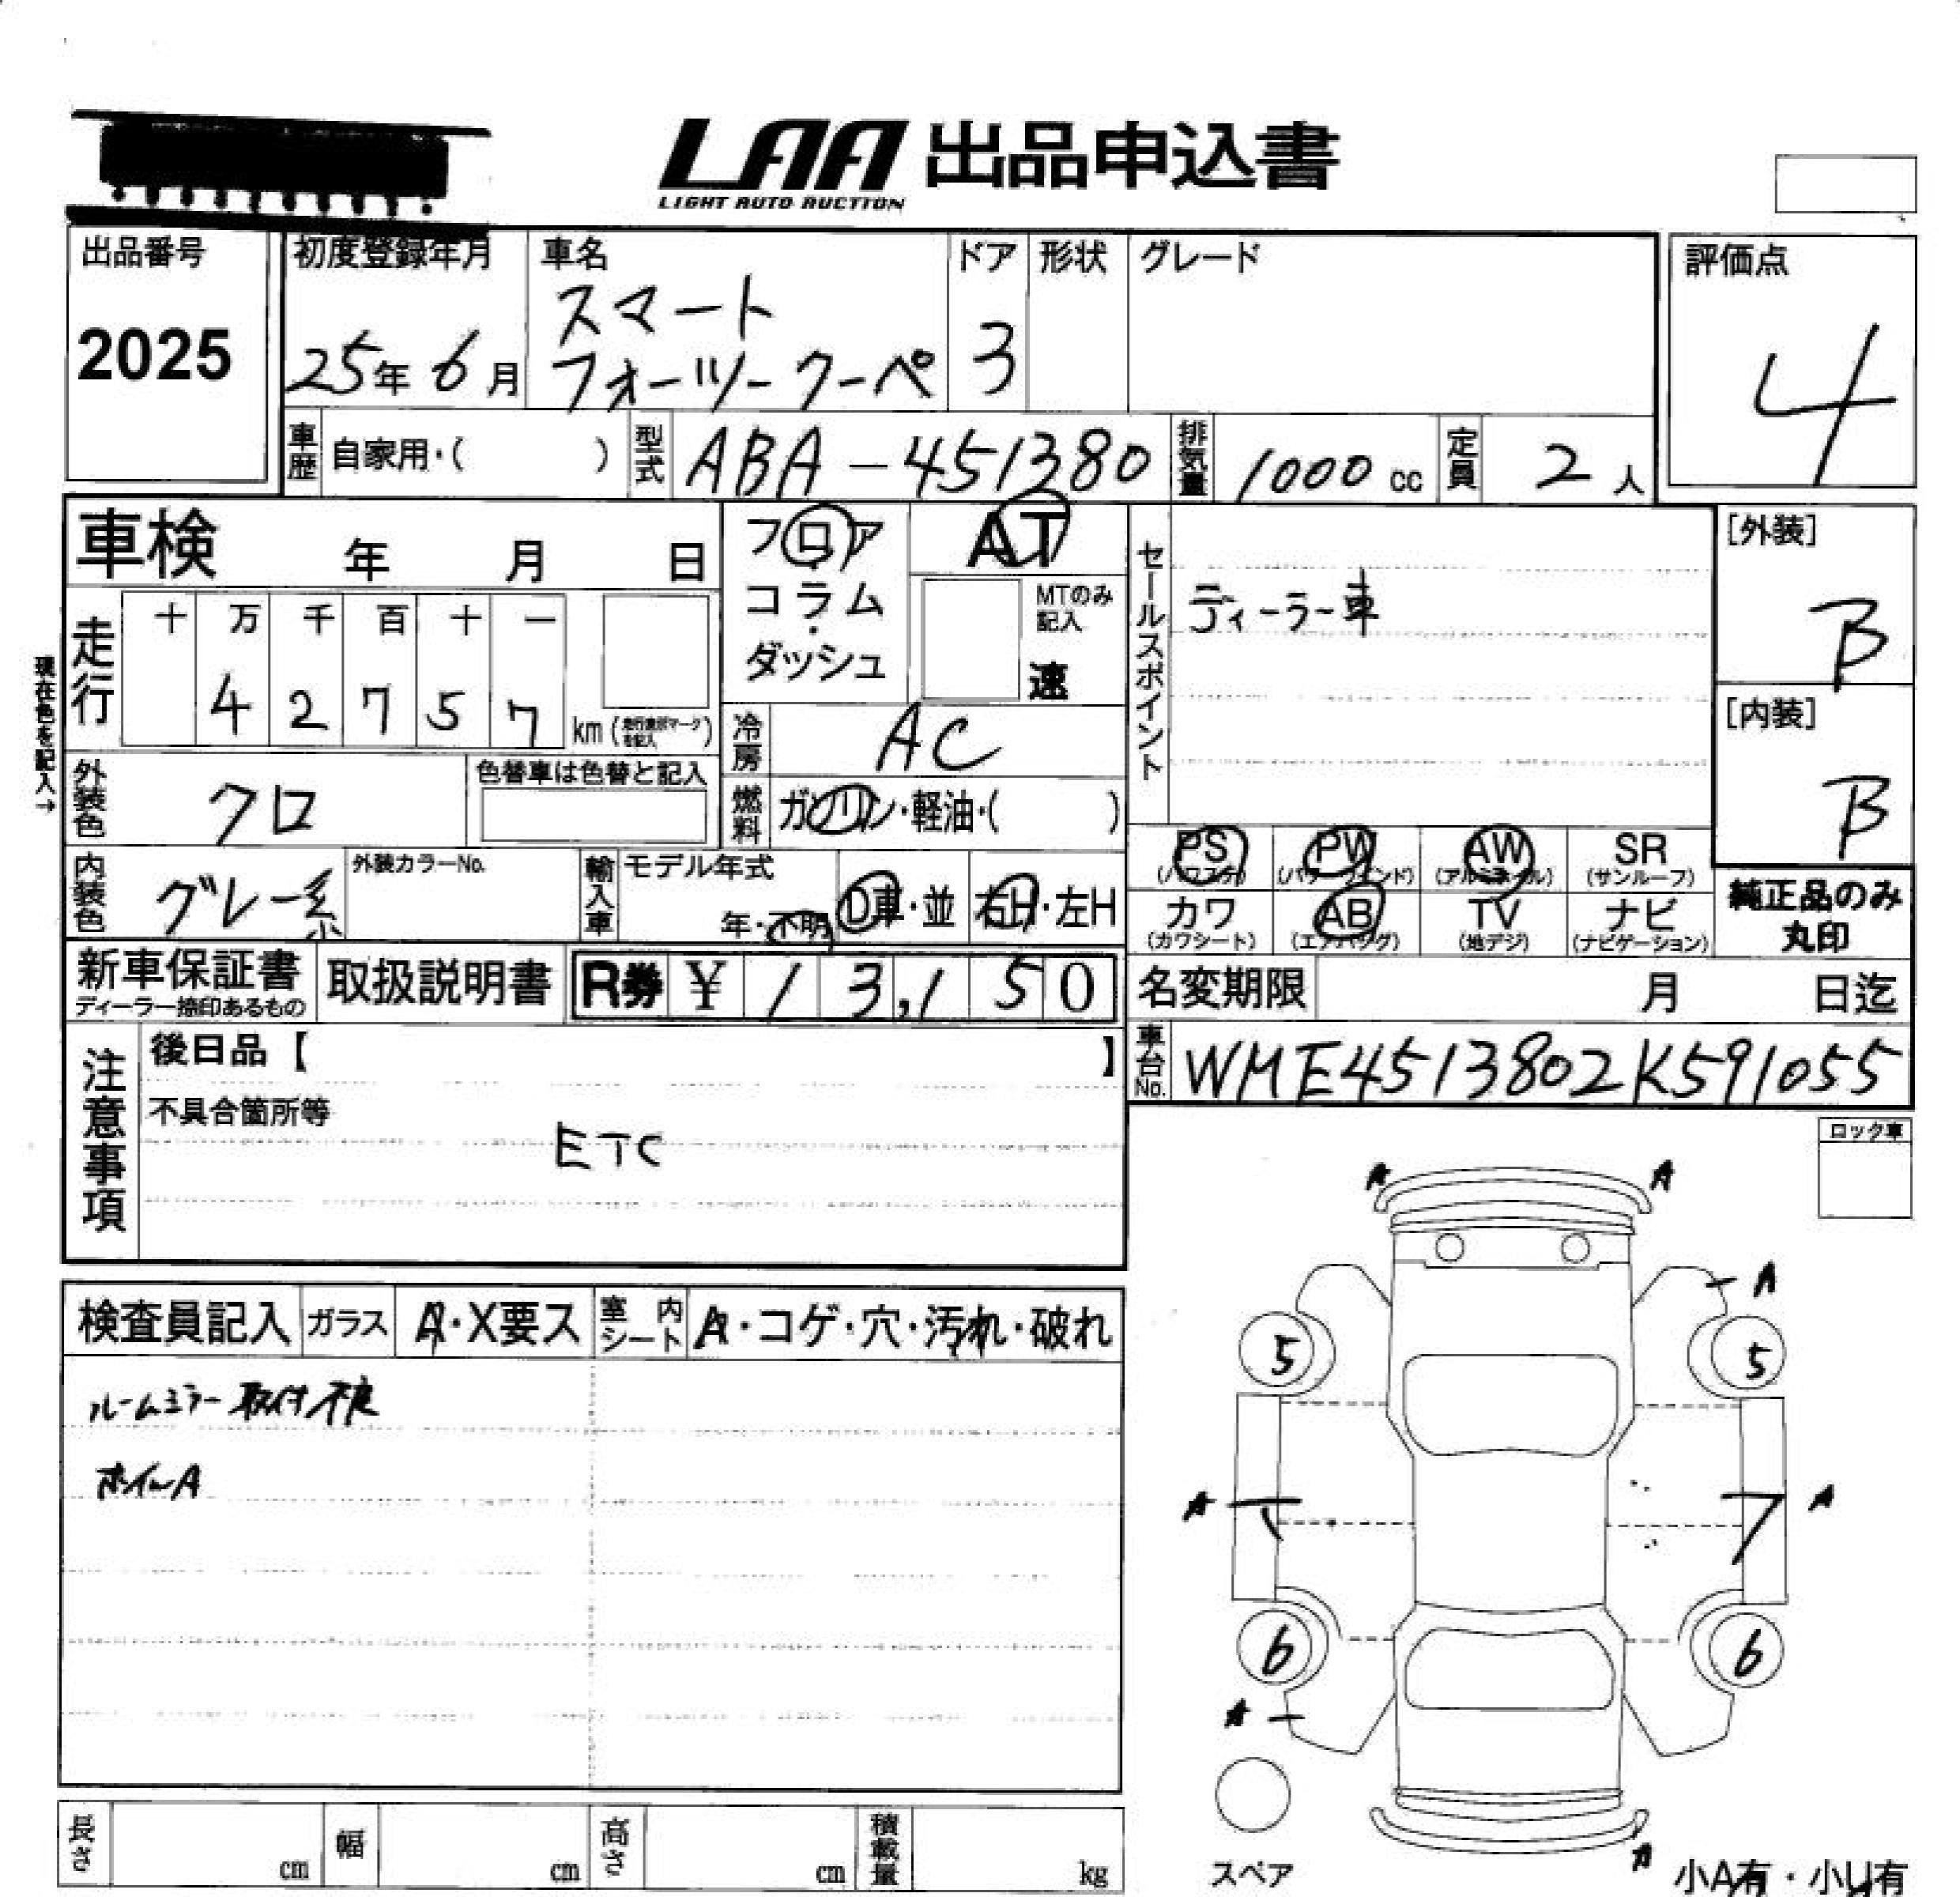 LAA 出品申込書
LIGHT AUTO AUCTION
出品番号
2025
初度登録年月
25年 6月
車名
スマート
フォーツークーペ
ドア
3
形状
グレード
評価点
4
車歴
自家用・( )
型式
ABA-451380
排気量
1000 cc
定員
2 人
車検 年 月 日
フロア
コラム
・
ダッシュ
AT
MTのみ
記入
速
セールスポイント
ディーラー車
[外装]
B
[内装]
B
現在色を記入→
走行
十 万 千 百 十 一
4 2 7 5 7
km (走行要所マーク
を記入)
冷房
AC
外装色
クロ
色替車は色替と記入
燃料
ガソリン・軽油・( )
内装色
グレー系
外装カラーNo.
輸入車
モデル年式
年・不明
D車・並
右H・左H
PS
(パワステ)
PW
(パワーウインド)
AW
(アルミホイル)
SR
(サンルーフ)
カワ
(カワシート)
AB
(エアバッグ)
TV
(地デジ)
ナビ
(ナビゲーション)
純正品のみ
丸印
新車保証書
ディーラー捺印あるもの
取扱説明書
R券 ¥ 13,150
名変期限 月 日迄
車台No.
WME4513802K591055
注意事項
後日品【 】
不具合箇所等
ETC
ロック車
検査員記入
ガラス
A・X要ス
室内
シート
A・コゲ・穴・汚れ・破れ
ルームミラー取付不良
ホイルA
A A
A
5 5
A A
7
6 6
A
A
スペア
小A有・小U有
長さ cm
幅 cm
高さ cm
積載量 kg